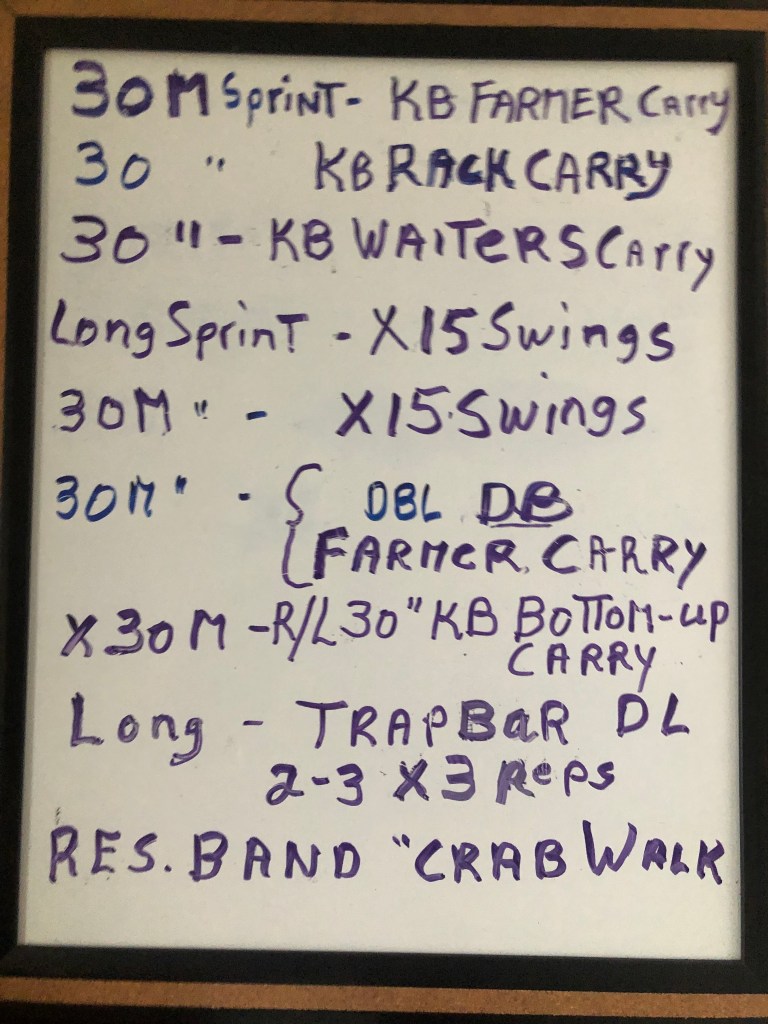 30M Sprint- KB FARMER Carry
30 " KB RACK CARRY
30 " - KB WAITERS Carry
Long Sprint - X15 Swings
30M " - X15 Swings
30M " - { DBL DB
FARMER CARRY
X30M -R/L 30" KB BOTTOM-up
CARRY
Long - TRAPBaR DL
2-3 X3 Reps
RES. BAND "CRAB WALK